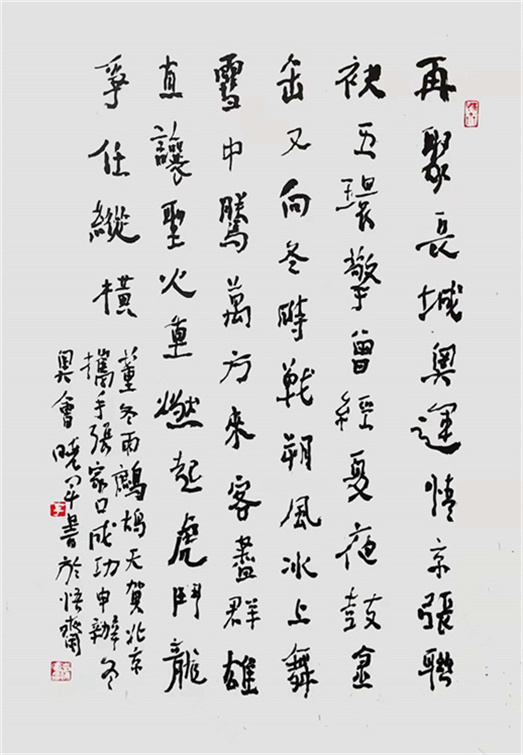 再聚長城奧運情京張聯
袂五環擎曾經夏夜鼓金
缶又向冬時戰朔風冰上舞
雪中騰萬方來客盡群雄
直讓聖火重燃起虎鬥龍
爭任縱橫
董冬雨鷓鴣天賀北京
攜手張家口成功申辦冬
奧會曉軍書於悟齋